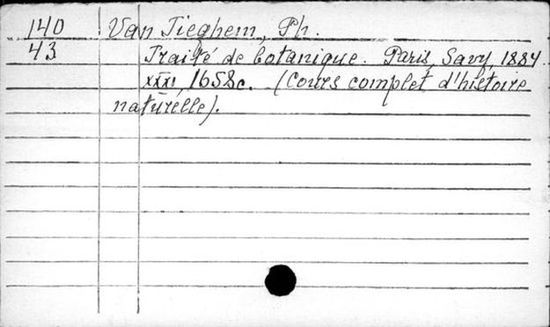 140 Van Tieghem, Ph.
43 Traité de botanique. Paris, Savy, 1884
XXXI, 1658c. (Cours complet d'histoire
naturelle).